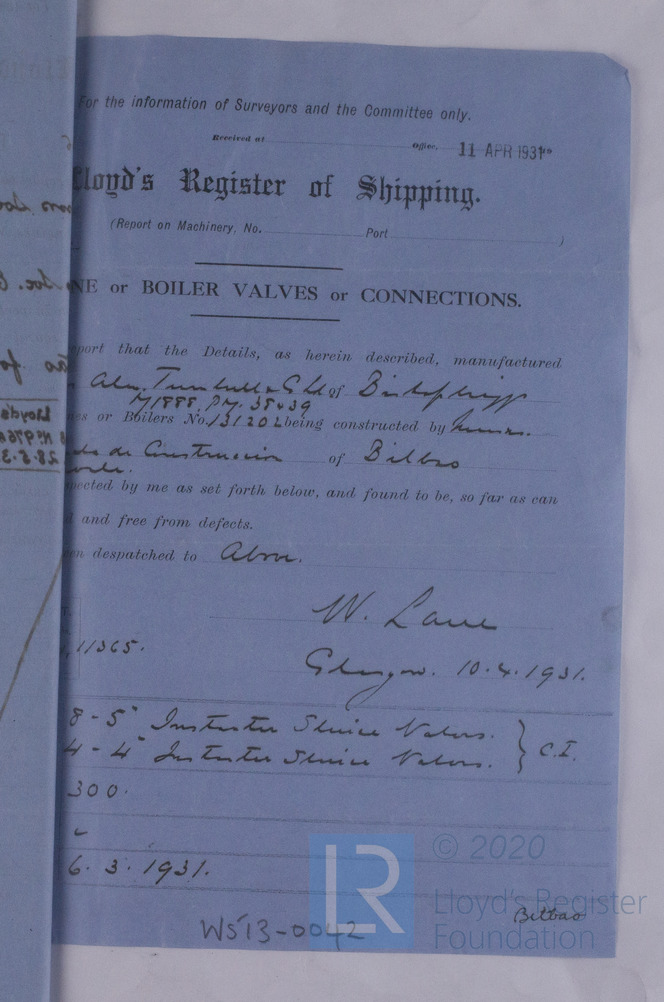 For the information of Surveyors and the Committee only.
Received at Office, 11 APR 1931
Lloyd's Register of Shipping.
(Report on Machinery, No. Port )
NE or BOILER VALVES or CONNECTIONS.
eport that the Details, as herein described, manufactured
Alex. Turnbull & Co Ld of Bishopbriggs
Y1888. P.Y. 38+39
es or Boilers No. 131202 being constructed by
de Construccion of Bilbao
pected by me as set forth below, and found to be, so far as can
d and free from defects.
en despatched to Above.
W. Lane
11365.
Glasgow. 10.4.1931.
8 - 5" Sluice Valves. } C.I.
4 - 4" Sluice Valves.
300.
6. 3. 1931.
© 2020
Lloyd's Register
Foundation
LR
Bilbao
WS13-0042